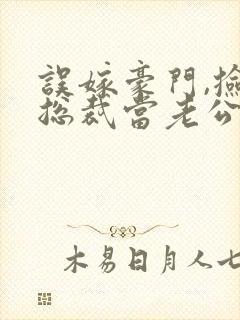 誤嫁豪門,撿
總裁當老公
木易日月人七